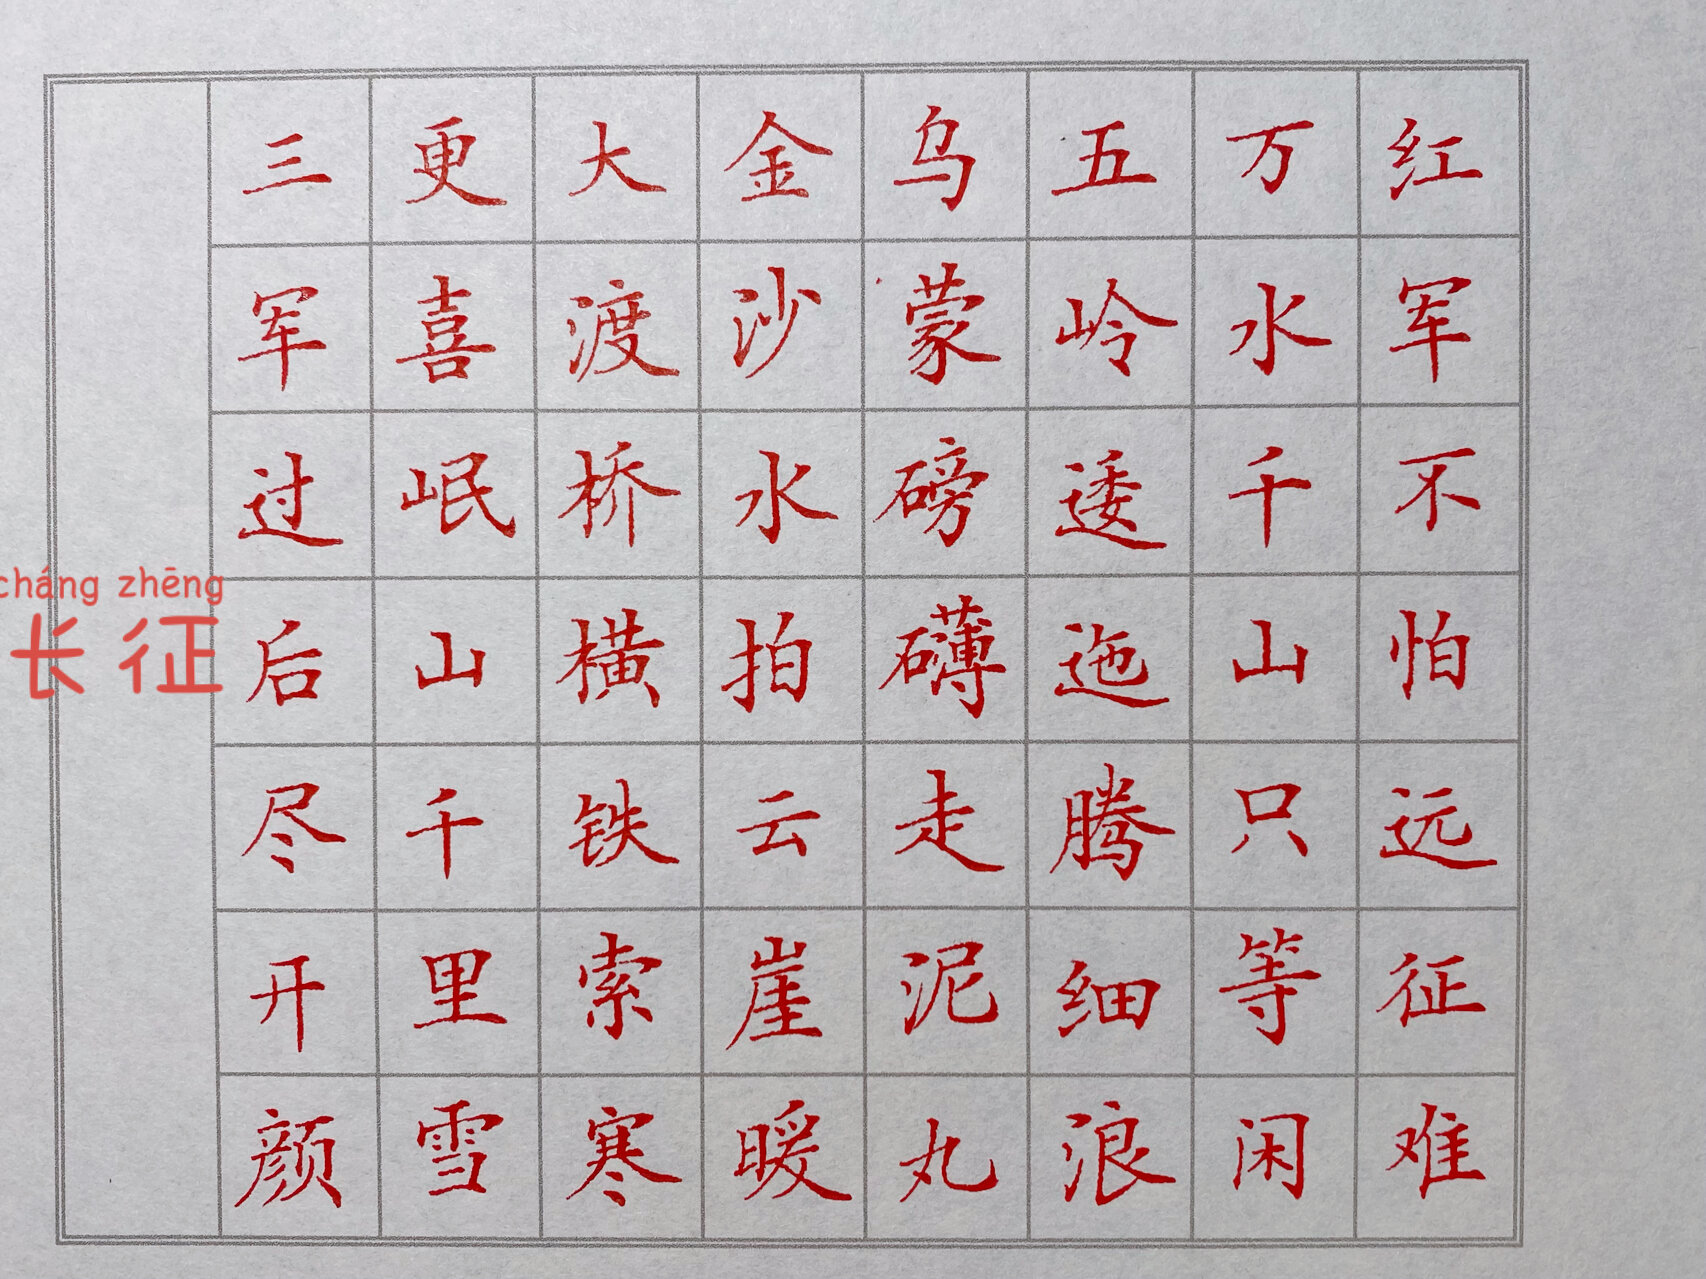 红军不怕远征难
万水千山只等闲
五岭逶迤腾细浪
乌蒙磅礴走泥丸
金沙水拍云崖暖
大渡桥横铁索寒
更喜岷山千里雪
三军过后尽开颜
cháng zhēng
长征